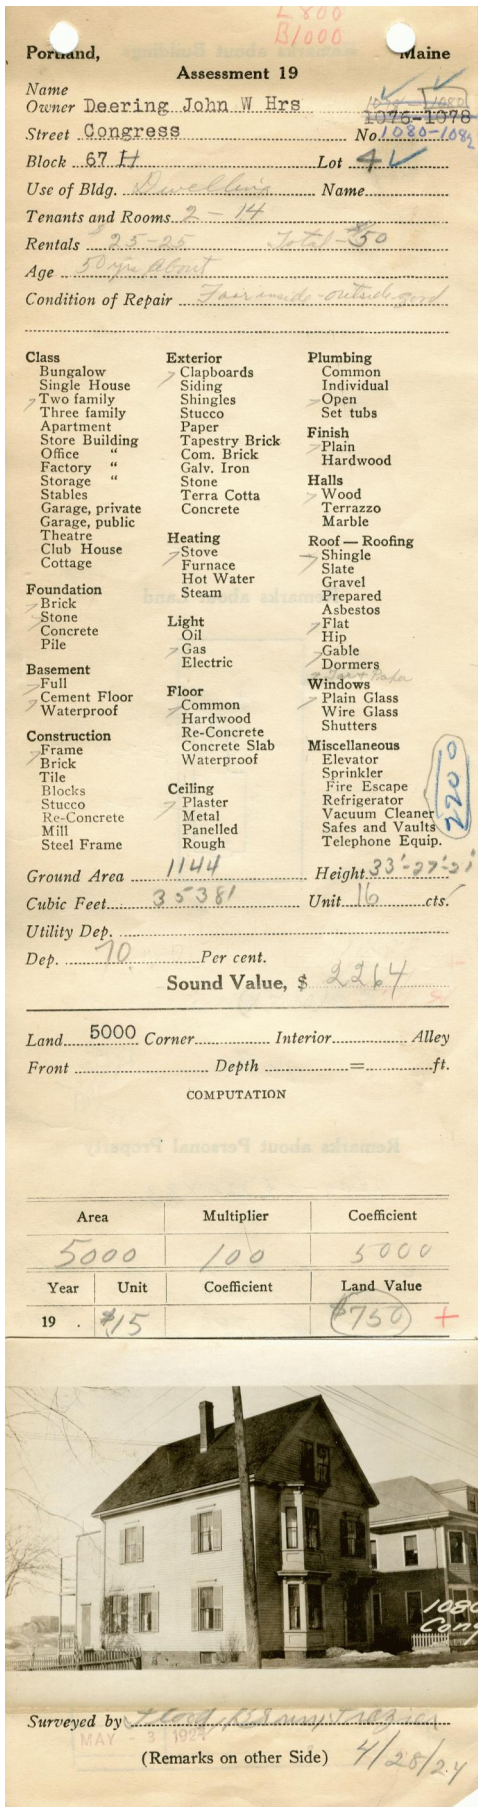 L 800
B 1000
Portland, Maine
Assessment 19
Name
Owner Deering John W Hrs 1076-1078
Street Congress No 1080-1082
Block 67 H Lot 4 ✓
Use of Bldg. Dwelling Name
Tenants and Rooms 2 - 14
Rentals $25-25 Total-$50
Age 50 yrs About
Condition of Repair Fair inside-outside good
Class
Bungalow
Single House
Two family
Three family
Apartment
Store Building
Office "
Factory "
Storage "
Stables
Garage, private
Garage, public
Theatre
Club House
Cottage
Foundation
Brick
Stone
Concrete
Pile
Basement
Full
Cement Floor
Waterproof
Construction
Frame
Brick
Tile
Blocks
Stucco
Re-Concrete
Mill
Steel Frame
Exterior
Clapboards
Siding
Shingles
Stucco
Paper
Tapestry Brick
Com. Brick
Galv. Iron
Stone
Terra Cotta
Concrete
Heating
Stove
Furnace
Hot Water
Steam
Light
Oil
Gas
Electric
Floor
Common
Hardwood
Re-Concrete
Concrete Slab
Waterproof
Ceiling
Plaster
Metal
Panelled
Rough
Plumbing
Common
Individual
Open
Set tubs
Finish
Plain
Hardwood
Halls
Wood
Terrazzo
Marble
Roof — Roofing
Shingle
Slate
Gravel
Prepared
Asbestos
Flat
Hip
Gable
Dormers
Tar & Paper
Windows
Plain Glass
Wire Glass
Shutters
Miscellaneous
Elevator
Sprinkler
Fire Escape
Refrigerator
Vacuum Cleaner
Safes and Vaults
Telephone Equip.
2200
Ground Area 1144 Height 33'-27'-21'
Cubic Feet 35381 Unit 16 cts.
Utility Dep.
Dep. 70 Per cent.
Sound Value, $ 2264
Land 5000 Corner Interior Alley
Front Depth = ft.
COMPUTATION
Area Multiplier Coefficient
5000 100 5000
Year Unit Coefficient Land Value
19 . $15 $750 +
1080
Cong
Surveyed by
MAY - 3 192
(Remarks on other Side) 4/28/24